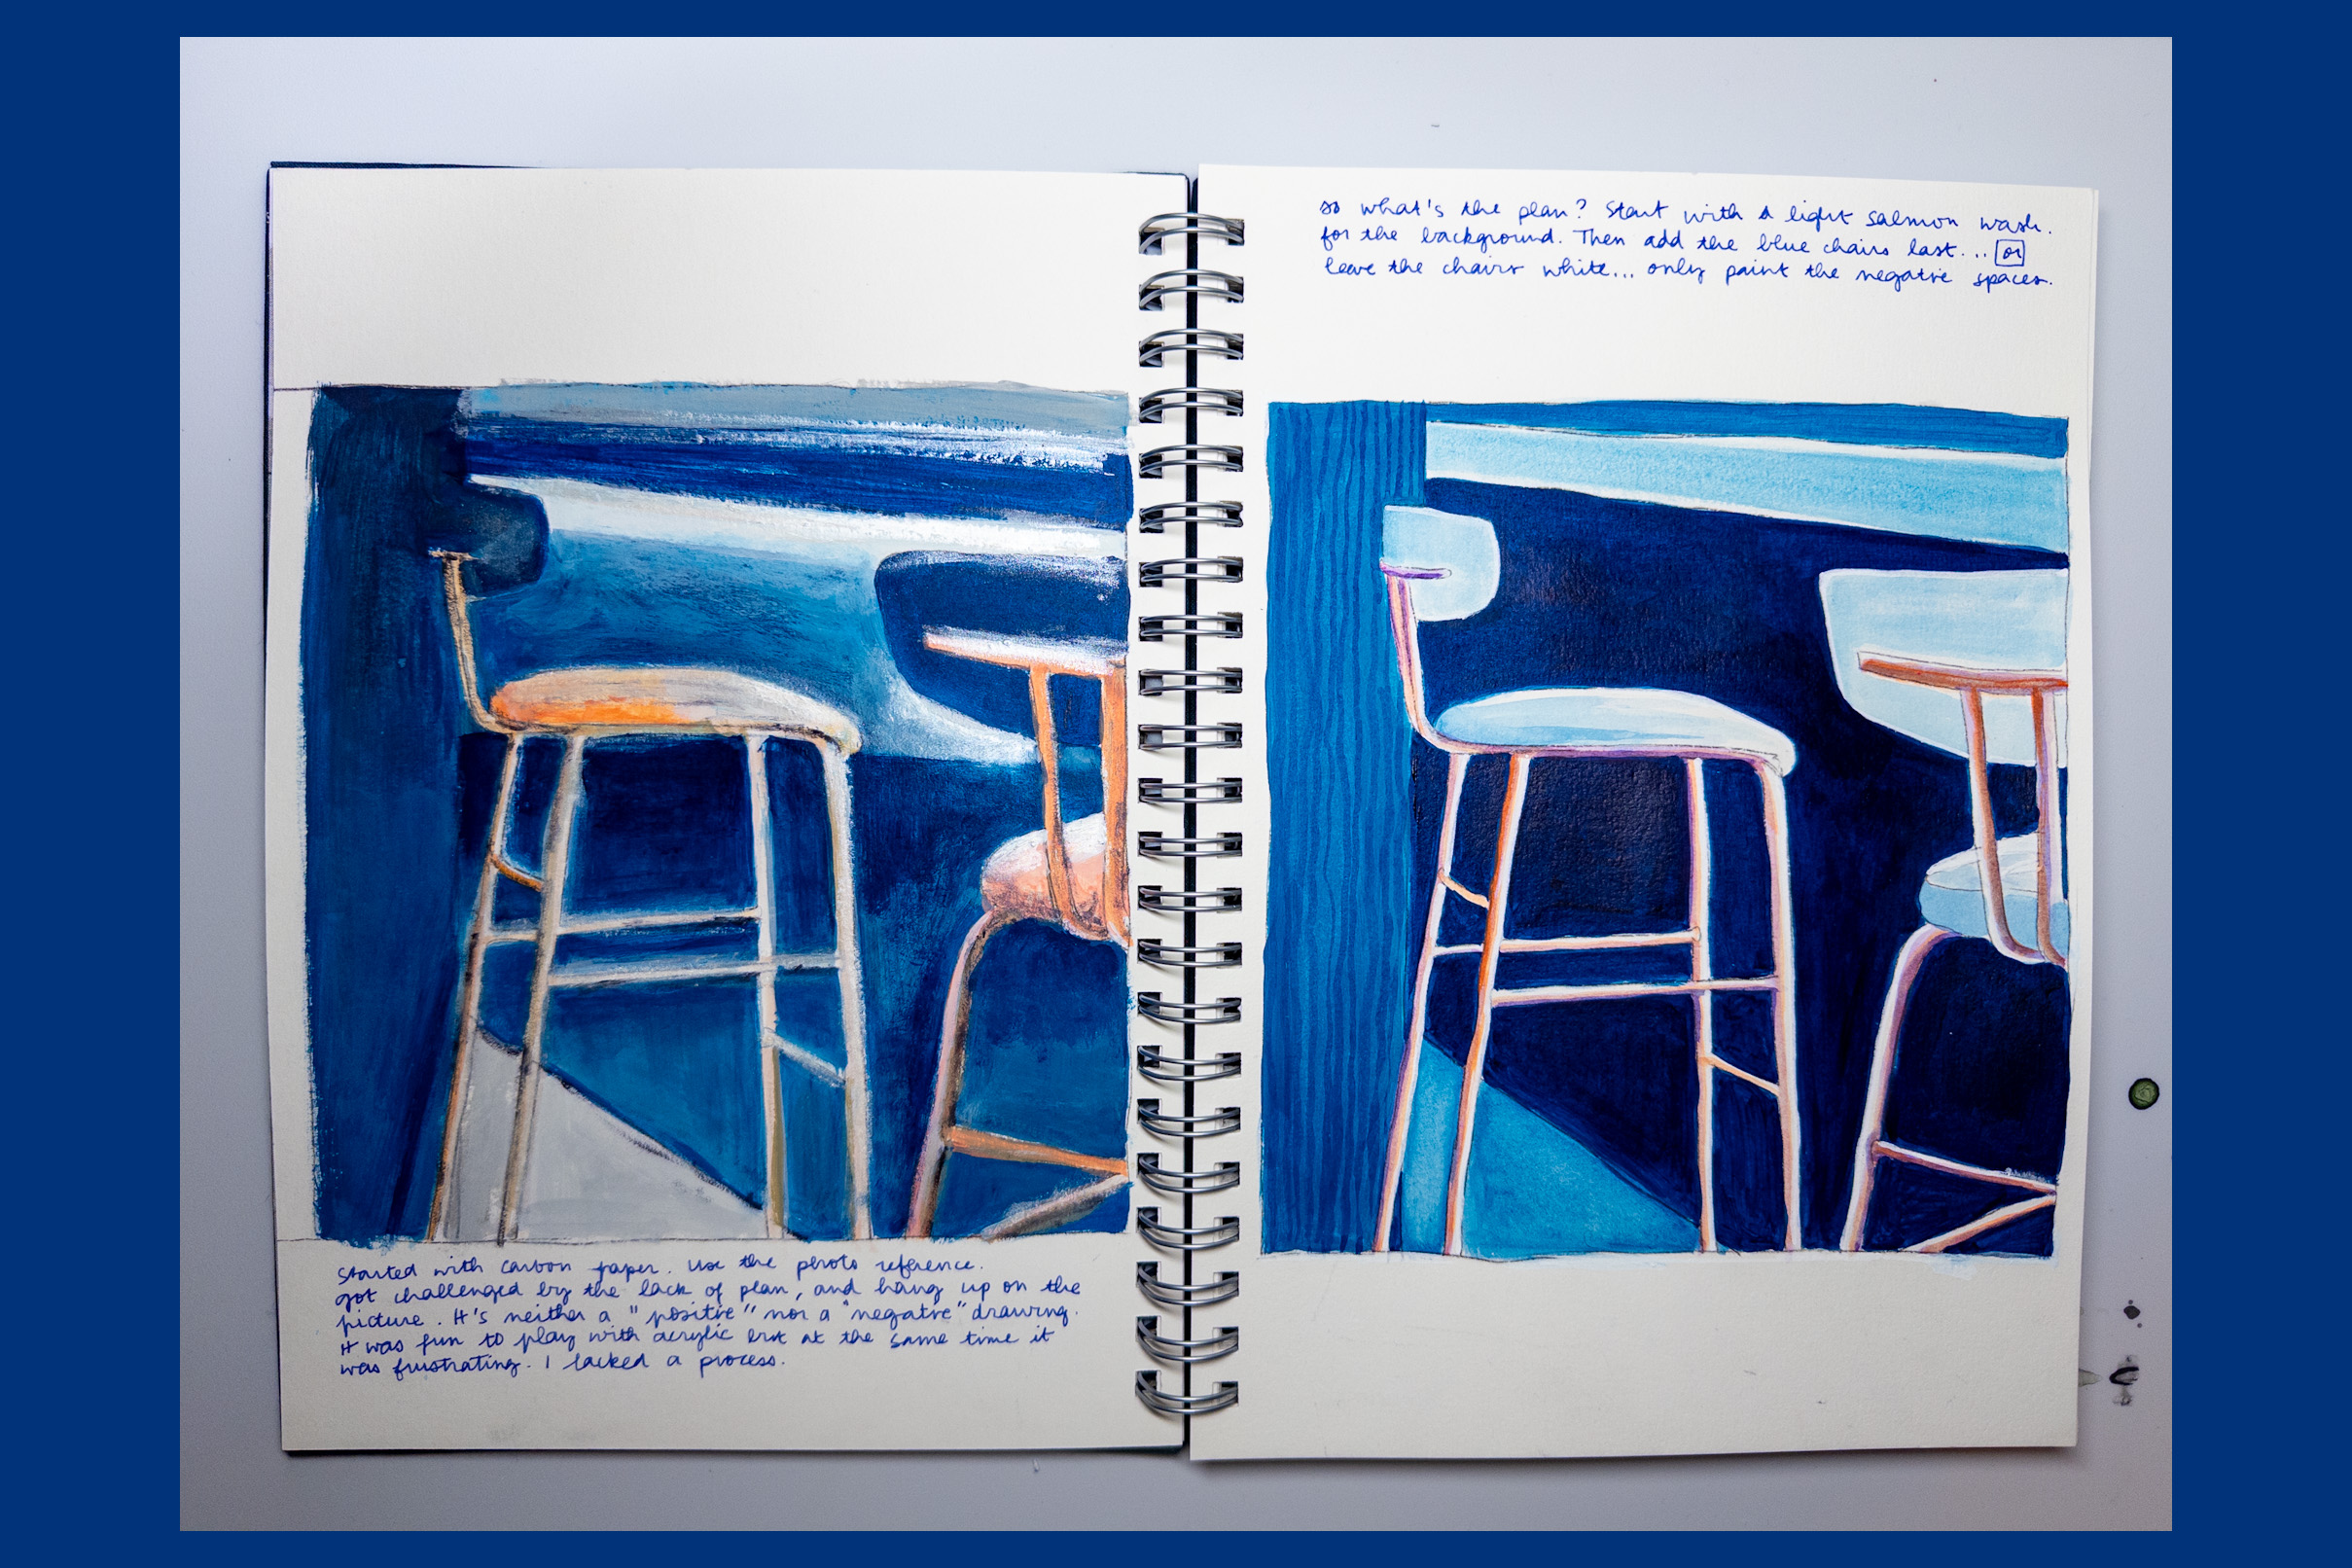 Started with carbon paper. Use the photo reference.
got challenged by the lack of plan, and hang up on the
picture. It's neither a "positive" nor a "negative" drawing.
It was fun to play with acrylic but at the same time it
was frustrating. I lacked a process.
so what's the plan? Start with a light salmon wash.
for the background. Then add the blue chairs last... or
leave the chairs white... only paint the negative spaces.